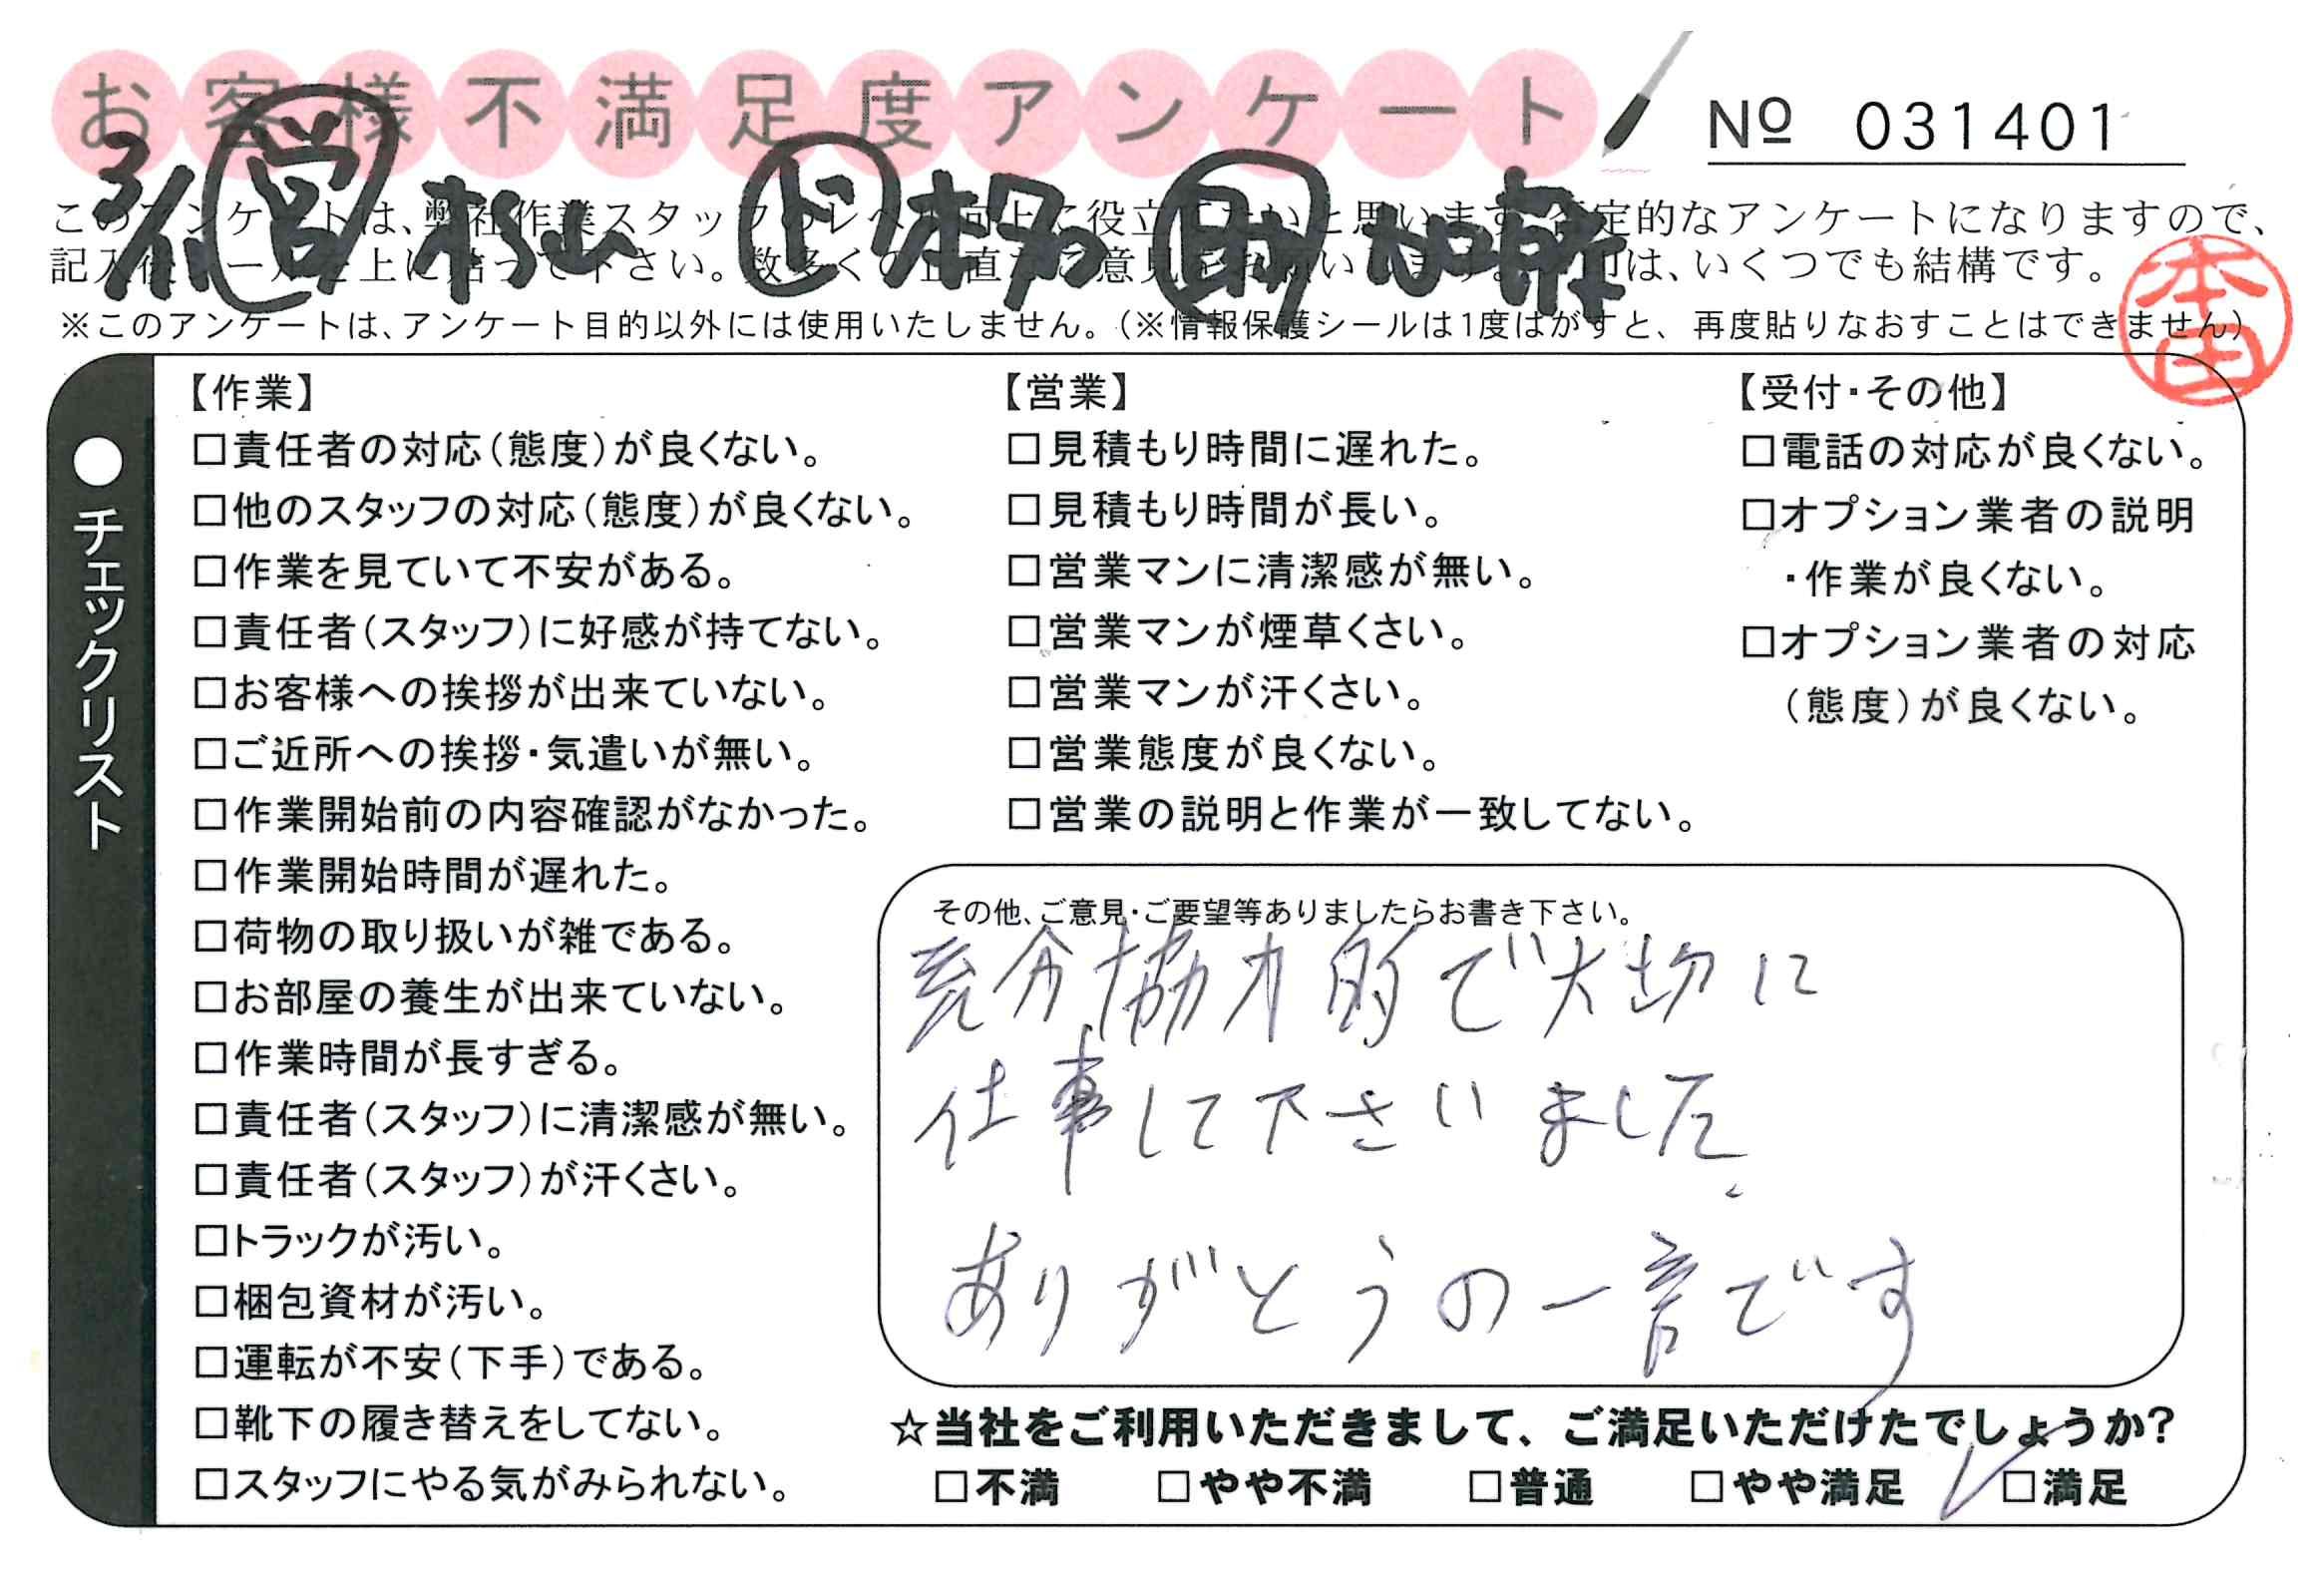 お客様不満足度アンケート
№ 031401
3/11 営 杉山 ド 本多 助 加藤
このアンケートは、弊社作業スタッフのレベル向上に役立てたいと思います。否定的なアンケートになりますので、
記入後シールを上に貼って下さい。数多くの正直なご意見をお願いします。✓印は、いくつでも結構です。
※このアンケートは、アンケート目的以外には使用いたしません。(※情報保護シールは1度はがすと、再度貼りなおすことはできません)
本田
●チェックリスト
【作業】
□責任者の対応(態度)が良くない。
□他のスタッフの対応(態度)が良くない。
□作業を見ていて不安がある。
□責任者(スタッフ)に好感が持てない。
□お客様への挨拶が出来ていない。
□ご近所への挨拶・気遣いが無い。
□作業開始前の内容確認がなかった。
□作業開始時間が遅れた。
□荷物の取り扱いが雑である。
□お部屋の養生が出来ていない。
□作業時間が長すぎる。
□責任者(スタッフ)に清潔感が無い。
□責任者(スタッフ)が汗くさい。
□トラックが汚い。
□梱包資材が汚い。
□運転が不安(下手)である。
□靴下の履き替えをしてない。
□スタッフにやる気がみられない。
【営業】
□見積もり時間に遅れた。
□見積もり時間が長い。
□営業マンに清潔感が無い。
□営業マンが煙草くさい。
□営業マンが汗くさい。
□営業態度が良くない。
□営業の説明と作業が一致してない。
【受付・その他】
□電話の対応が良くない。
□オプション業者の説明
・作業が良くない。
□オプション業者の対応
(態度)が良くない。
その他、ご意見・ご要望等ありましたらお書き下さい。
充分協力的で大切に
仕事して下さいました。
ありがとうの一言です
☆当社をご利用いただきまして、ご満足いただけたでしょうか?
□不満 □やや不満 □普通 □やや満足 ✓□満足